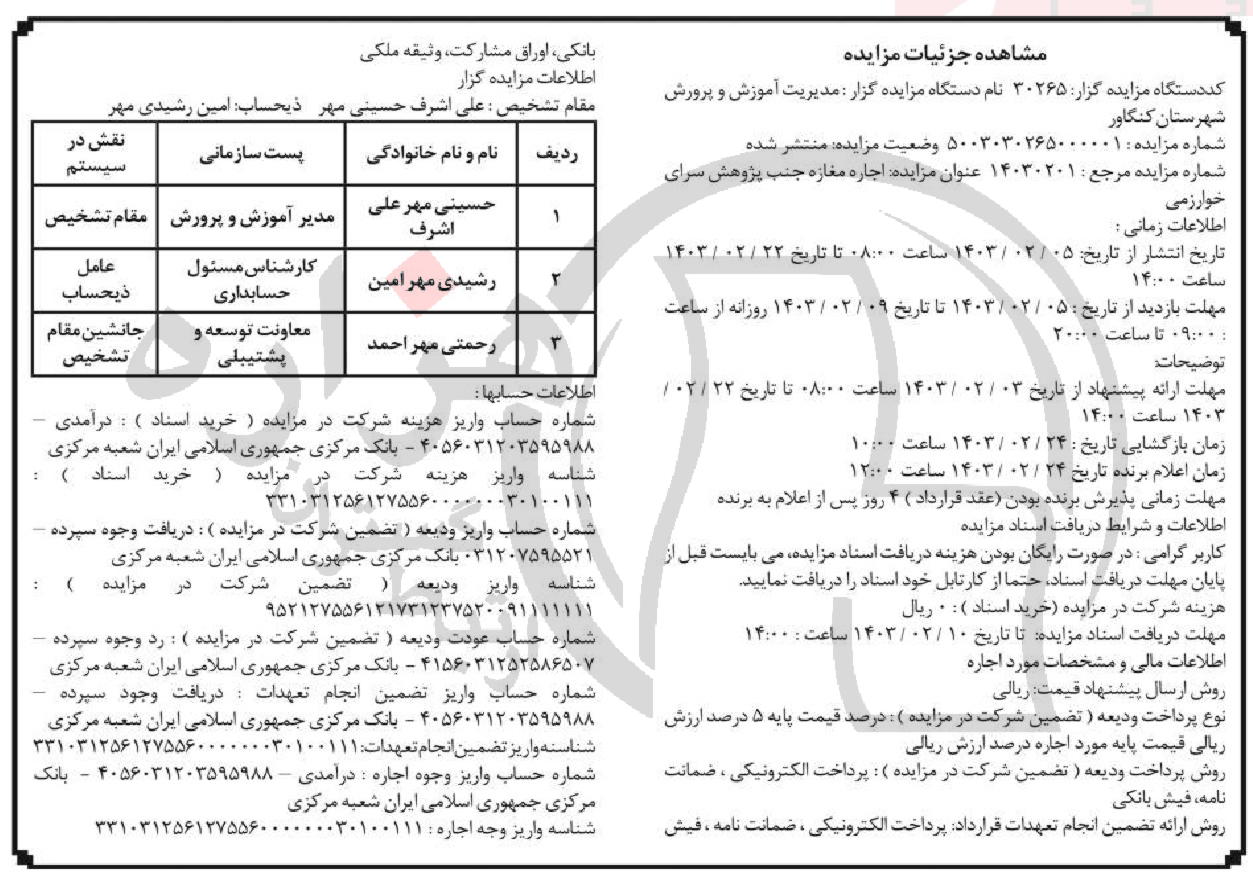 مشاهده جزئیات مزایده
کددستگاه مزایده گزار: ۳۰۲۶۵ نام دستگاه مزایده گزار : مدیریت آموزش و پرورش
شهرستان کنگاور
شماره مزایده : ۵۰۰۳۰۳۰۲۶۵۰۰۰۰۰۱ وضعیت مزایده: منتشر شده
شماره مزایده مرجع : ۱۴۰۳۰۲۰۱ عنوان مزایده: اجاره مغازه جنب پژوهش سرای
خوارزمی
اطلاعات زمانی :
تاریخ انتشار از تاریخ: ۰۵ / ۰۲ / ۱۴۰۳ ساعت ۰۸:۰۰ تا تاریخ ۲۲ / ۰۲ / ۱۴۰۳
ساعت ۱۴:۰۰
مهلت بازدید از تاریخ : ۰۵ / ۰۲ / ۱۴۰۳ تا تاریخ ۰۹ / ۰۲ / ۱۴۰۳ روزانه از ساعت
: ۰۹:۰۰ تا ساعت ۲۰:۰۰
توضیحات:
مهلت ارائه پیشنهاد از تاریخ ۰۳ / ۰۲ / ۱۴۰۳ ساعت ۰۸:۰۰ تا تاریخ ۲۲ / ۰۲ /
۱۴۰۳ ساعت ۱۴:۰۰
زمان بازگشایی تاریخ : ۲۴ / ۰۲ / ۱۴۰۳ ساعت ۱۰:۰۰
زمان اعلام برنده تاریخ ۲۴ / ۰۲ / ۱۴۰۳ ساعت ۱۲:۰۰
مهلت زمانی پذیرش برنده بودن (عقد قرارداد ) ۴ روز پس از اعلام به برنده
اطلاعات و شرایط دریافت اسناد مزایده
کاربر گرامی : در صورت رایگان بودن هزینه دریافت اسناد مزایده، می بایست قبل از
پایان مهلت دریافت اسناد، حتما از کارتابل خود اسناد را دریافت نمایید.
هزینه شرکت در مزایده (خرید اسناد ) : ۰ ریال
مهلت دریافت اسناد مزایده: تا تاریخ ۱۰ / ۰۲ / ۱۴۰۳ ساعت : ۱۴:۰۰
اطلاعات مالی و مشخصات مورد اجاره
روش ارسال پیشنهاد قیمت: ریالی
نوع پرداخت ودیعه ( تضمین شرکت در مزایده ) : درصد قیمت پایه ۵ درصد ارزش
ریالی قیمت پایه مورد اجاره درصد ارزش ریالی
روش پرداخت ودیعه ( تضمین شرکت در مزایده ) : پرداخت الکترونیکی ، ضمانت
نامه، فیش بانکی
روش ارائه تضمین انجام تعهدات قرارداد: پرداخت الکترونیکی ، ضمانت نامه ، فیش
بانکی، اوراق مشارکت، وثیقه ملکی
اطلاعات مزایده گزار
مقام تشخیص : علی اشرف حسینی مهر ذیحساب: امین رشیدی مهر
ردیف نام و نام خانوادگی پست سازمانی نقش در سیستم
۱ حسینی مهر علی اشرف مدیر آموزش و پرورش مقام تشخیص
۲ رشیدی مهر امین کارشناس مسئول حسابداری عامل ذیحساب
۳ رحمتی مهر احمد معاونت توسعه و پشتیبلی جانشین مقام تشخیص
اطلاعات حسابها:
شماره حساب واریز هزینه شرکت در مزایده ( خرید اسناد ) : درآمدی –
۴۰۵۶۰۳۱۲۰۳۵۹۵۹۸۸ - بانک مرکزی جمهوری اسلامی ایران شعبه مرکزی
شناسه واریز هزینه شرکت در مزایده ( خرید اسناد ) :
۳۳۱۰۳۱۲۵۶۱۲۷۵۵۶۰۰۰۰۰۰۰۳۰۱۰۰۱۱۱
شماره حساب واریز ودیعه ( تضمین شرکت در مزایده ) : دریافت وجوه سپرده –
۰۳۱۲۰۷۵۹۵۵۲۱ بانک مرکزی جمهوری اسلامی ایران شعبه مرکزی
شناسه واریز ودیعه ( تضمین شرکت در مزایده ) :
۹۵۲۱۲۷۵۵۶۱۲۱۷۳۱۲۳۷۵۲۰۰۹۱۱۱۱۱۱۱
شماره حساب عودت ودیعه ( تضمین شرکت در مزایده ) : رد وجوه سپرده –
۴۱۵۶۰۳۱۲۵۲۵۸۶۵۰۷ - بانک مرکزی جمهوری اسلامی ایران شعبه مرکزی
شماره حساب واریز تضمین انجام تعهدات : دریافت وجود سپرده –
۴۰۵۶۰۳۱۲۰۳۵۹۵۹۸۸ - بانک مرکزی جمهوری اسلامی ایران شعبه مرکزی
شناسنه واریز تضمین انجام تعهدات: ۳۳۱۰۳۱۲۵۶۱۲۷۵۵۶۰۰۰۰۰۰۰۳۰۱۰۰۱۱۱
شماره حساب واریز وجوه اجاره : درآمدی – ۴۰۵۶۰۳۱۲۰۳۵۹۵۹۸۸ - بانک
مرکزی جمهوری اسلامی ایران شعبه مرکزی
شناسه واریز وجه اجاره : ۳۳۱۰۳۱۲۵۶۱۲۷۵۵۶۰۰۰۰۰۰۰۳۰۱۰۰۱۱۱